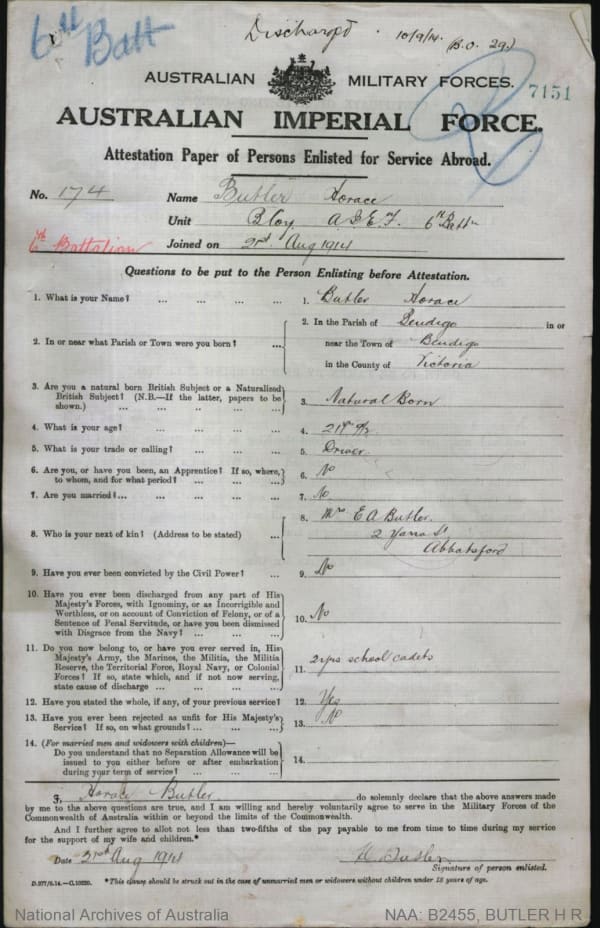 6th Batt
Discharged 10/9/14 (B.O. 29)
AUSTRALIAN MILITARY FORCES.
7151
AUSTRALIAN IMPERIAL FORCE.
Attestation Paper of Persons Enlisted for Service Abroad.
No. 174 Name Butler Horace
Unit B Coy 6th Battn
6th Battalion Joined on Aug 1914
Questions to be put to the Person Enlisting before Attestation.
1. What is your Name? ... ... ... ... 1. Butler Horace
2. In or near what Parish or Town were you born? ... 2. In the Parish of Bendigo in or
near the Town of Bendigo
in the County of Victoria
3. Are you a natural born British Subject or a Naturalized
British Subject? (N.B.—If the latter, papers to be
shown.) ... ... ... ... ... 3. Natural Born
4. What is your age? ... ... ... ... 4. 21
5. What is your trade or calling? ... ... ... 5. Driver
6. Are you, or have you been, an Apprentice? If so, where,
to whom, and for what period? ... ... ... 6. No
7. Are you married? ... ... ... ... ... 7. No
8. Who is your next of kin? (Address to be stated) ... 8. Mrs E A Butler.
2 Yarra St
Abbotsford
9. Have you ever been convicted by the Civil Power? ... 9. No
10. Have you ever been discharged from any part of His
Majesty's Forces, with Ignominy, or as Incorrigible and
Worthless, or on account of Conviction of Felony, or of a
Sentence of Penal Servitude, or have you been dismissed
with Disgrace from the Navy? ... ... ... 10. No
11. Do you now belong to, or have you ever served in, His
Majesty's Army, the Marines, the Militia, the Militia
Reserve, the Territorial Force, Royal Navy, or Colonial
Forces? If so, state which, and if not now serving,
state cause of discharge ... ... ... ... 11. 2 yrs school cadets
12. Have you stated the whole, if any, of your previous service? 12. Yes
13. Have you ever been rejected as unfit for His Majesty's
Service? If so, on what grounds? ... ... ... 13. No
14. (For married men and widowers with children)—
Do you understand that no Separation Allowance will be
issued to you either before or after embarkation
during your term of service? ... ... ... 14.
I, Horace Butler do solemnly declare that the above answers made
by me to the above questions are true, and I am willing and hereby voluntarily agree to serve in the Military Forces of the
Commonwealth of Australia within or beyond the limits of the Commonwealth.
And I further agree to allot not less than two-fifths of the pay payable to me from time to time during my service
for the support of my wife and children.*
Date Aug 1914 H. Butler
Signature of person enlisted.
D.977/8.14.—C.10230. *This clause should be struck out in the case of unmarried men or widowers without children under 18 years of age.
National Archives of Australia NAA: B2455, BUTLER H R